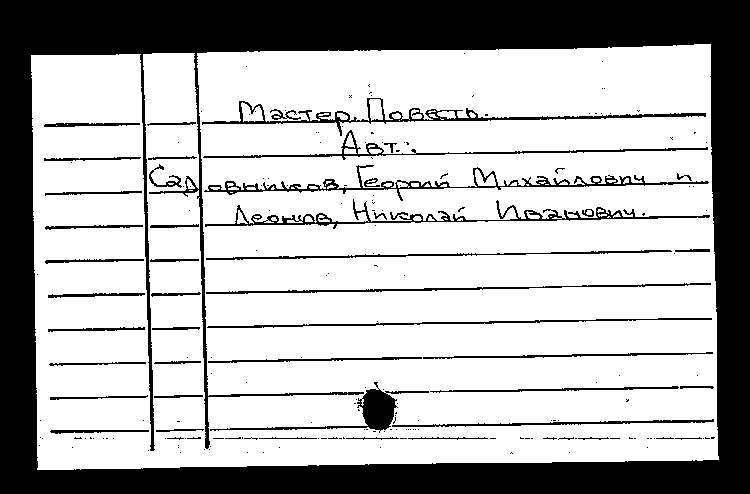 Мастер. Повесть.
Авт.:
Садовников, Георгий Михайлович и
Леонов, Николай Иванович.